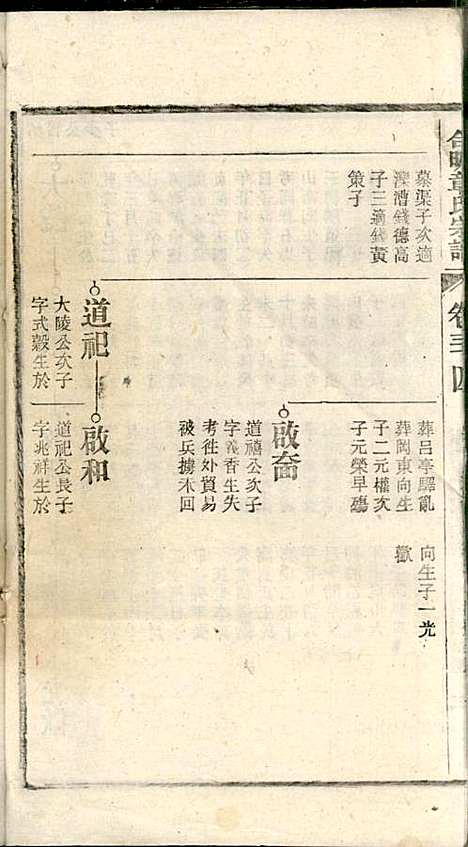 章氏宗譜
卷三四
葉渠子次適
濮漕錢德高
子三適錢黃
葉子
葬呂亭驛亂
葬岡東向生
子二元權次
子元榮早殤
向生子一光
歡
啟裔
道禧公次子
字義香生失
考徃外貿易
被兵擄未回
道祀
大陵公次子
字式穀生於
啟和
道祀公長子
字兆祥生於